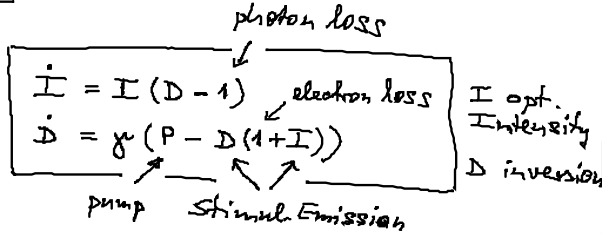 photon loss
İ = I (D - 1)
electron loss
Ḋ = γ (P - D (1 + I))
I opt.
Intensity
D inversion
pump
Stimul. Emission